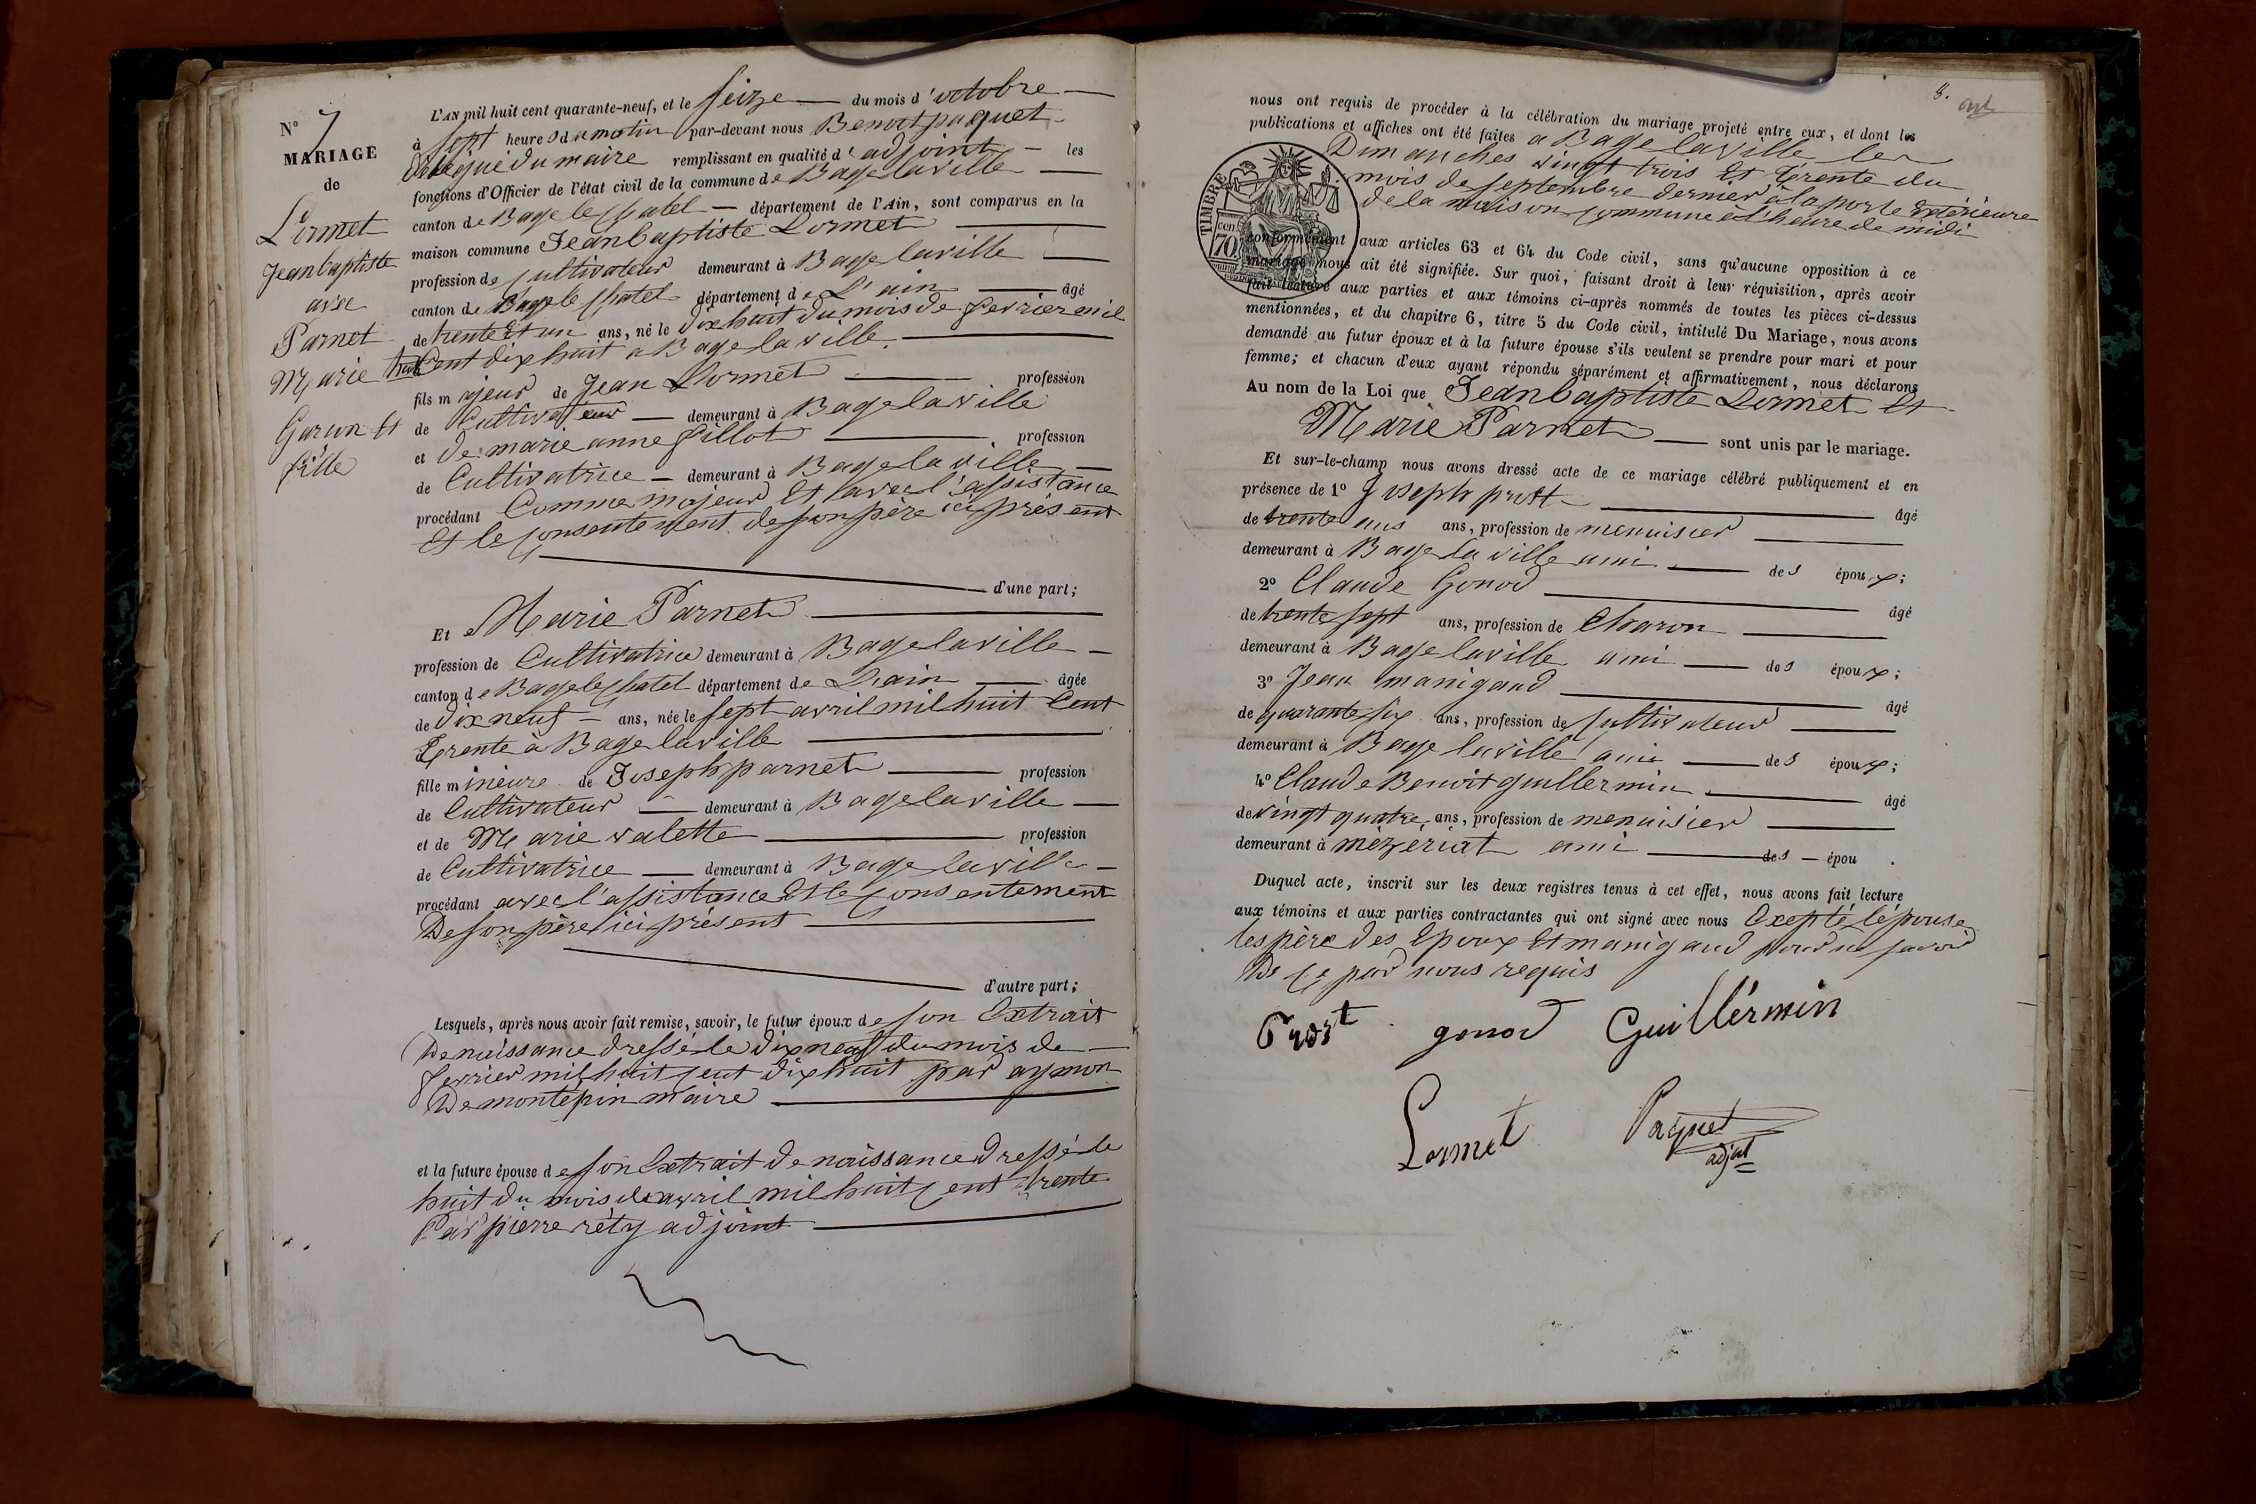 N° 7
MARIAGE
de
Lormet
Jeanbaptiste
avec
Parnet
Marie
Garcon et
fille
L'AN mil huit cent quarante-neuf, et le seize du mois d'octobre
à sept heures du matin par-devant nous Benoit paquet
délégué du maire remplissant en qualité d'adjoint les
fonctions d'Officier de l'état civil de la commune de Bage laville
canton de Bage le chatel département de l'Ain, sont comparus en la
maison commune Jeanbaptiste Lormet
profession de cultivateur demeurant à Bage laville
canton de Bage le chatel département de L'ain âgé
de trente et un ans, né le dix huit du mois de fevrier mil
huit Cent dix huit a Bage la ville
fils majeur de Jean Lormet profession
de Cultivateur demeurant à Bage laville
et de marie anne fillot profession
de Cultivatrice demeurant à Bage la ville
procédant Comme majeur Et avec l'assistance
Et le consentement de son père ici présent
d'une part;
Et Marie Parnet
profession de Cultivatrice demeurant à Bage laville
canton de Bage le chatel département de L'ain âgée
de dix neuf ans, née le sept avril mil huit Cent
trente à Bage laville
fille mineure de Joseph parnet profession
de Cultivateur demeurant à Bage laville
et de Marie valette profession
de Cultivatrice demeurant à Bage laville
procédant avec l'assistance Et le consentement
De son père ici présent
d'autre part;
Lesquels, après nous avoir fait remise, savoir, le futur époux de son Extrait
De naissance dressé le dix neuf du mois de
fevrier mil huit cent dix huit par aymon
De montepin maire
et la future épouse de son Extrait de naissance dressé le
huit du mois de avril mil huit cent trente
Par pierre réty adjoint
8.
nous ont requis de procéder à la célébration du mariage projeté entre eux, et dont les
publications et affiches ont été faites a Bage laville les
Dimanches vingt trois Et trente du
mois de septembre dernier à la porte extérieure
de la maison commune à l'heure de midi
TIMBRE
cen
70
conformément aux articles 63 et 64 du Code civil, sans qu'aucune opposition à ce
mariage nous ait été signifiée. Sur quoi, faisant droit à leur réquisition, après avoir
fait lecture aux parties et aux témoins ci-après nommés de toutes les pièces ci-dessus
mentionnées, et du chapitre 6, titre 5 du Code civil, intitulé Du Mariage, nous avons
demandé au futur époux et à la future épouse s'ils veulent se prendre pour mari et pour
femme; et chacun d'eux ayant répondu séparément et affirmativement, nous déclarons
Au nom de la Loi que Jeanbaptiste Lormet Et
Marie Parnet sont unis par le mariage.
Et sur-le-champ nous avons dressé acte de ce mariage célébré publiquement et en
présence de 1° Joseph prost âgé
de trente ans ans, profession de menuisier
demeurant à Bage la ville ami des époux;
2° Claude Gonod âgé
de trente sept ans, profession de Charon
demeurant à Bage laville ami des époux;
3° Jean manigaud âgé
de quarante six ans, profession de cultivateur
demeurant à Bage laville ami des époux;
4° Claude Benoit guillermin âgé
de vingt quatre ans, profession de menuisier
demeurant à mézériat ami des épou .
Duquel acte, inscrit sur les deux registres tenus à cet effet, nous avons fait lecture
aux témoins et aux parties contractantes qui ont signé avec nous Excepté l'épouse
les père des Epoux Et manigaud pour ne savoir
De ce par nous requis
Prost gonod Guillérmin
Lormet Paquet
adjt